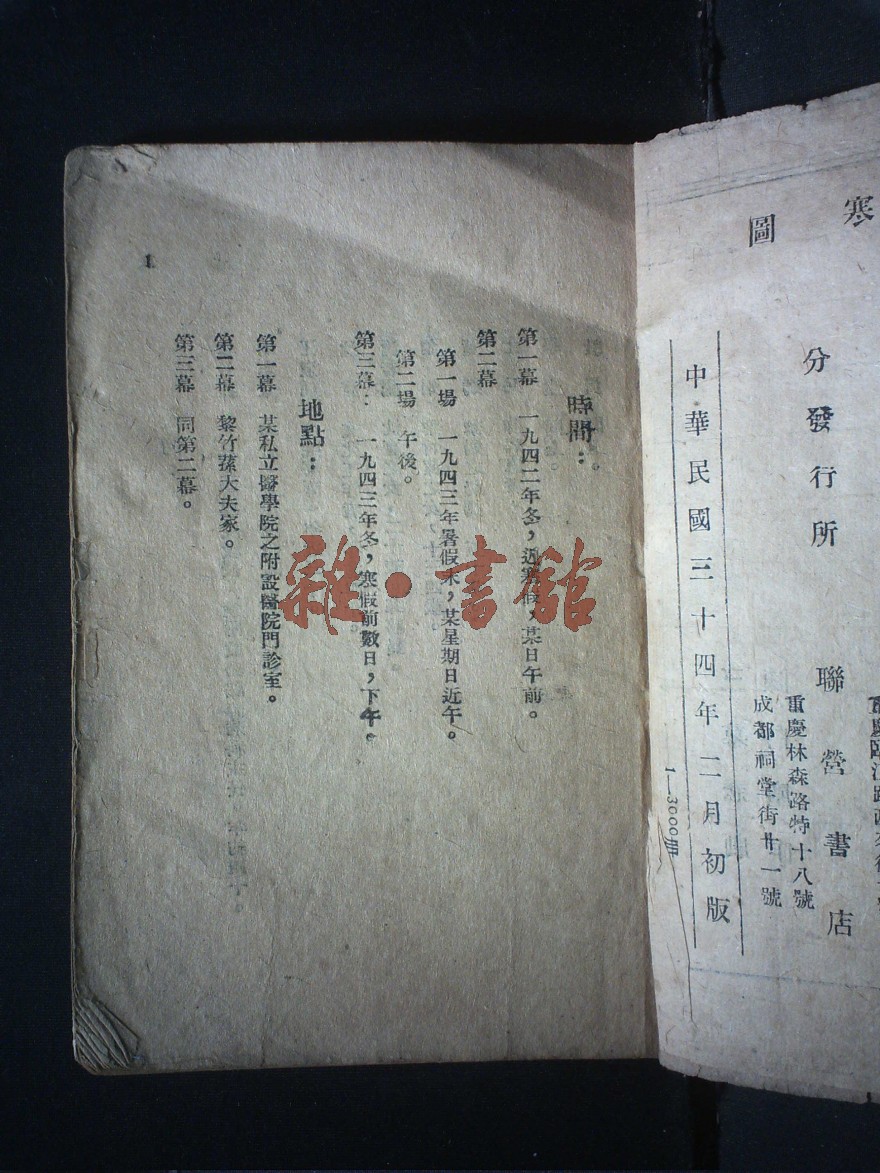 寒
圖
分發行所
聯營書店
重慶林森路特十八號
成都祠堂街廿一號
中華民國三十四年二月初版
1—3000冊
時間：
第一幕 一九四二年冬，近寒假，某日午前。
第二幕
第一場 一九四三年暑假末，某星期日近午。
第二場 午後。
第三幕： 一九四三年冬，寒假前數日，下午。
地點：
第一幕 某私立醫學院之附設醫院門診室。
第二幕 黎竹蓀大夫家。
第三幕 同第二幕。
1
雜·書館